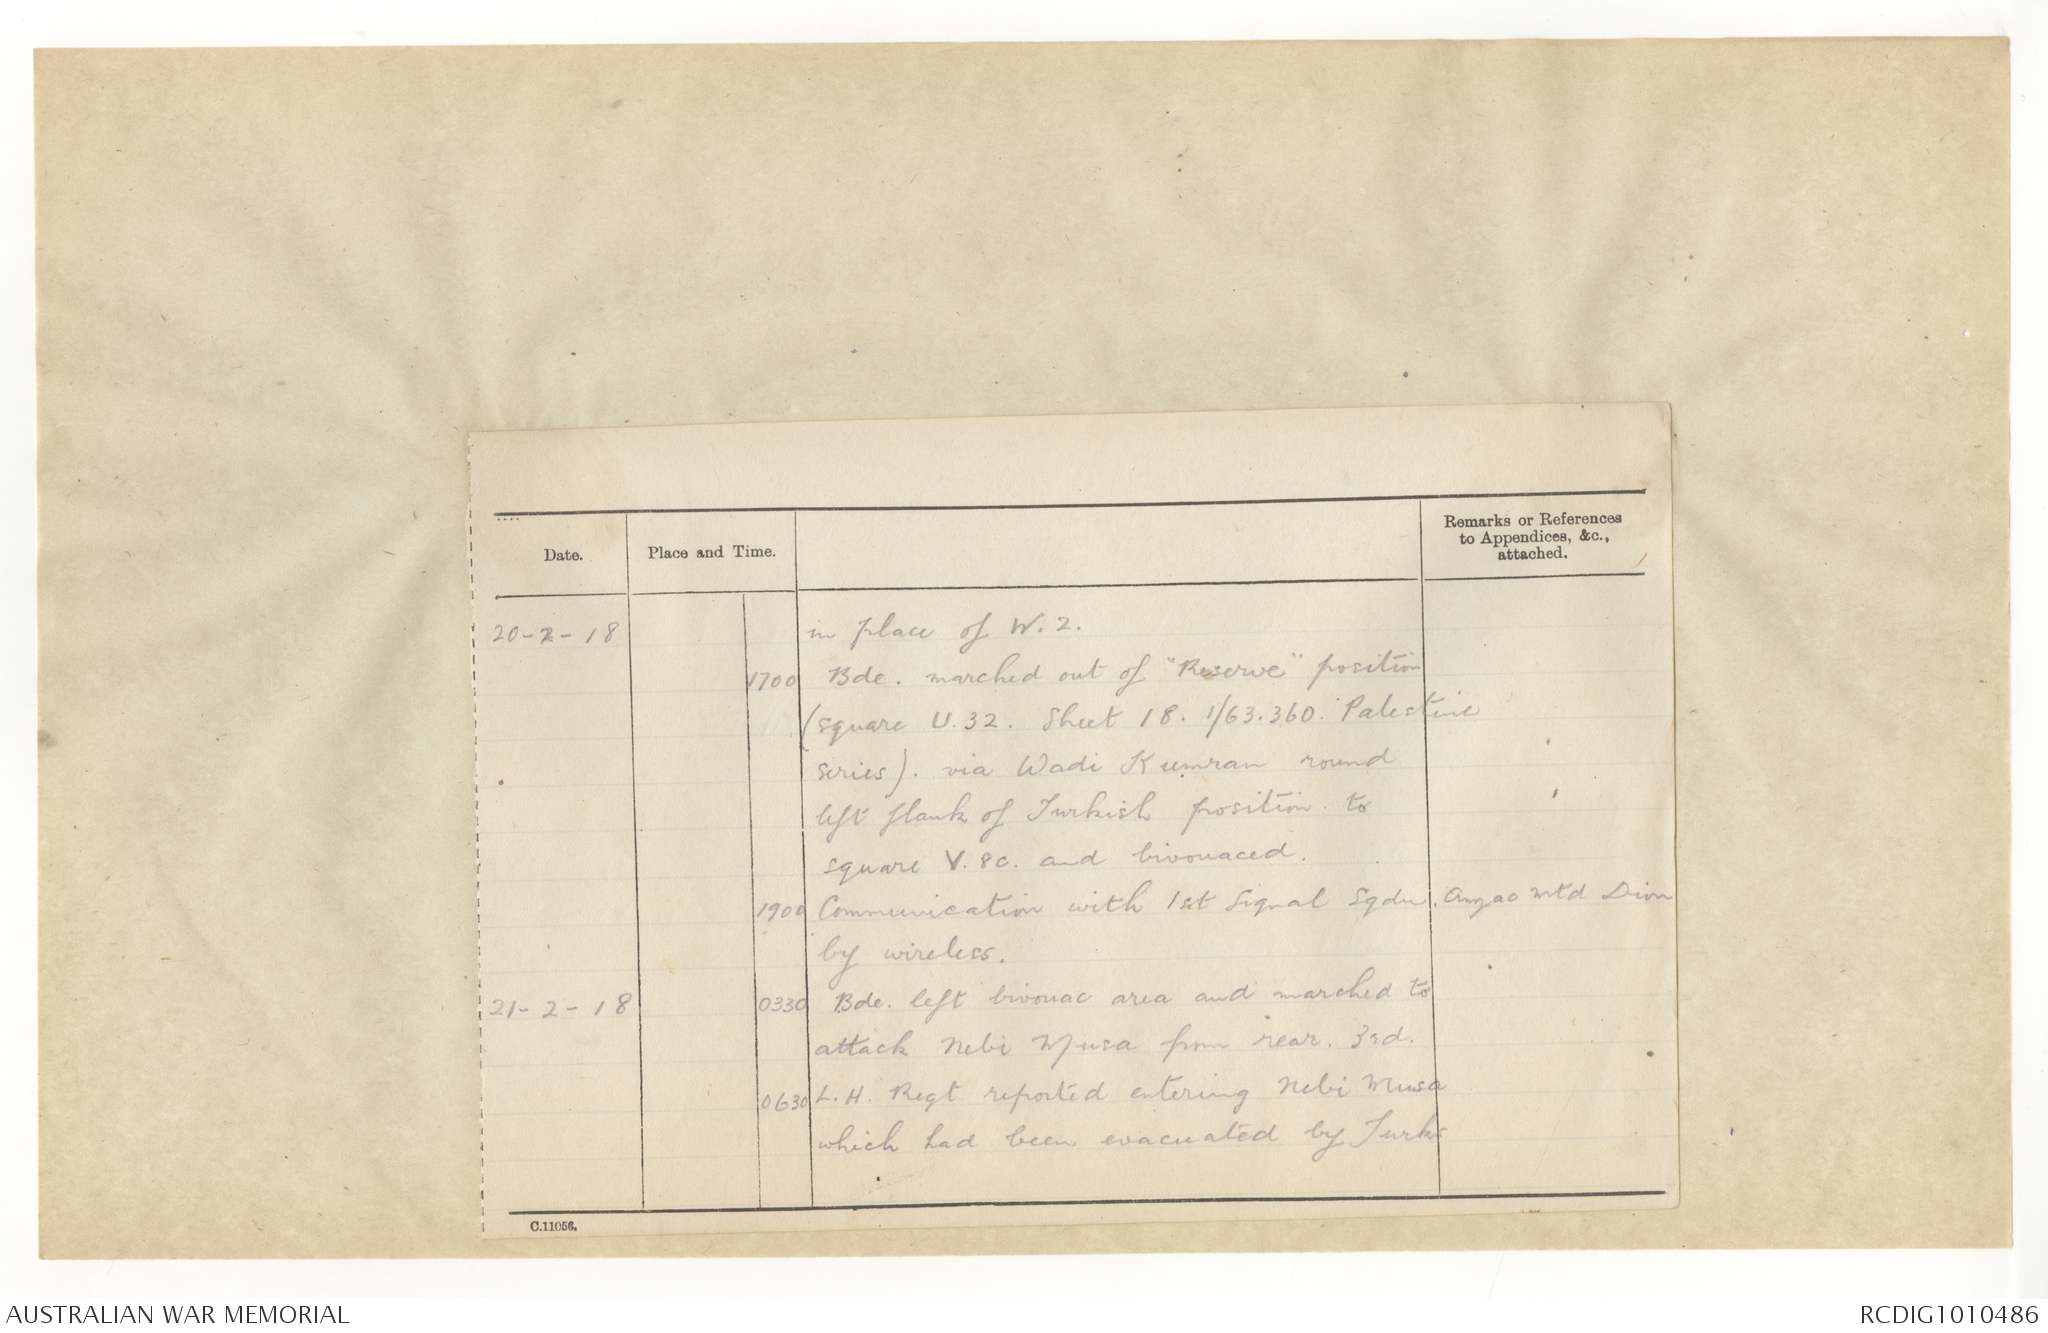 Date.
Place and Time.
Remarks or References
to Appendices, &c.,
attached.
20-2-18
in place of W.2.
1700 Bde. marched out of "Reserve" position
(square U.32. Sheet 18. 1/63.360. Palestine
series). via Wadi Kumran round
left flank of Turkish position. to
square V.8c. and bivouaced.
1900 Communication with 1st Signal Sqdn. Anzac Mtd Divn
by wireless.
21-2-18 0330 Bde. left bivouac area and marched to
attack Nebi Musa from rear. 3rd.
0630 L.H. Regt reported entering Nebi Musa
which had been evacuated by Turks
C.11056.
AUSTRALIAN WAR MEMORIAL
RCDIG1010486